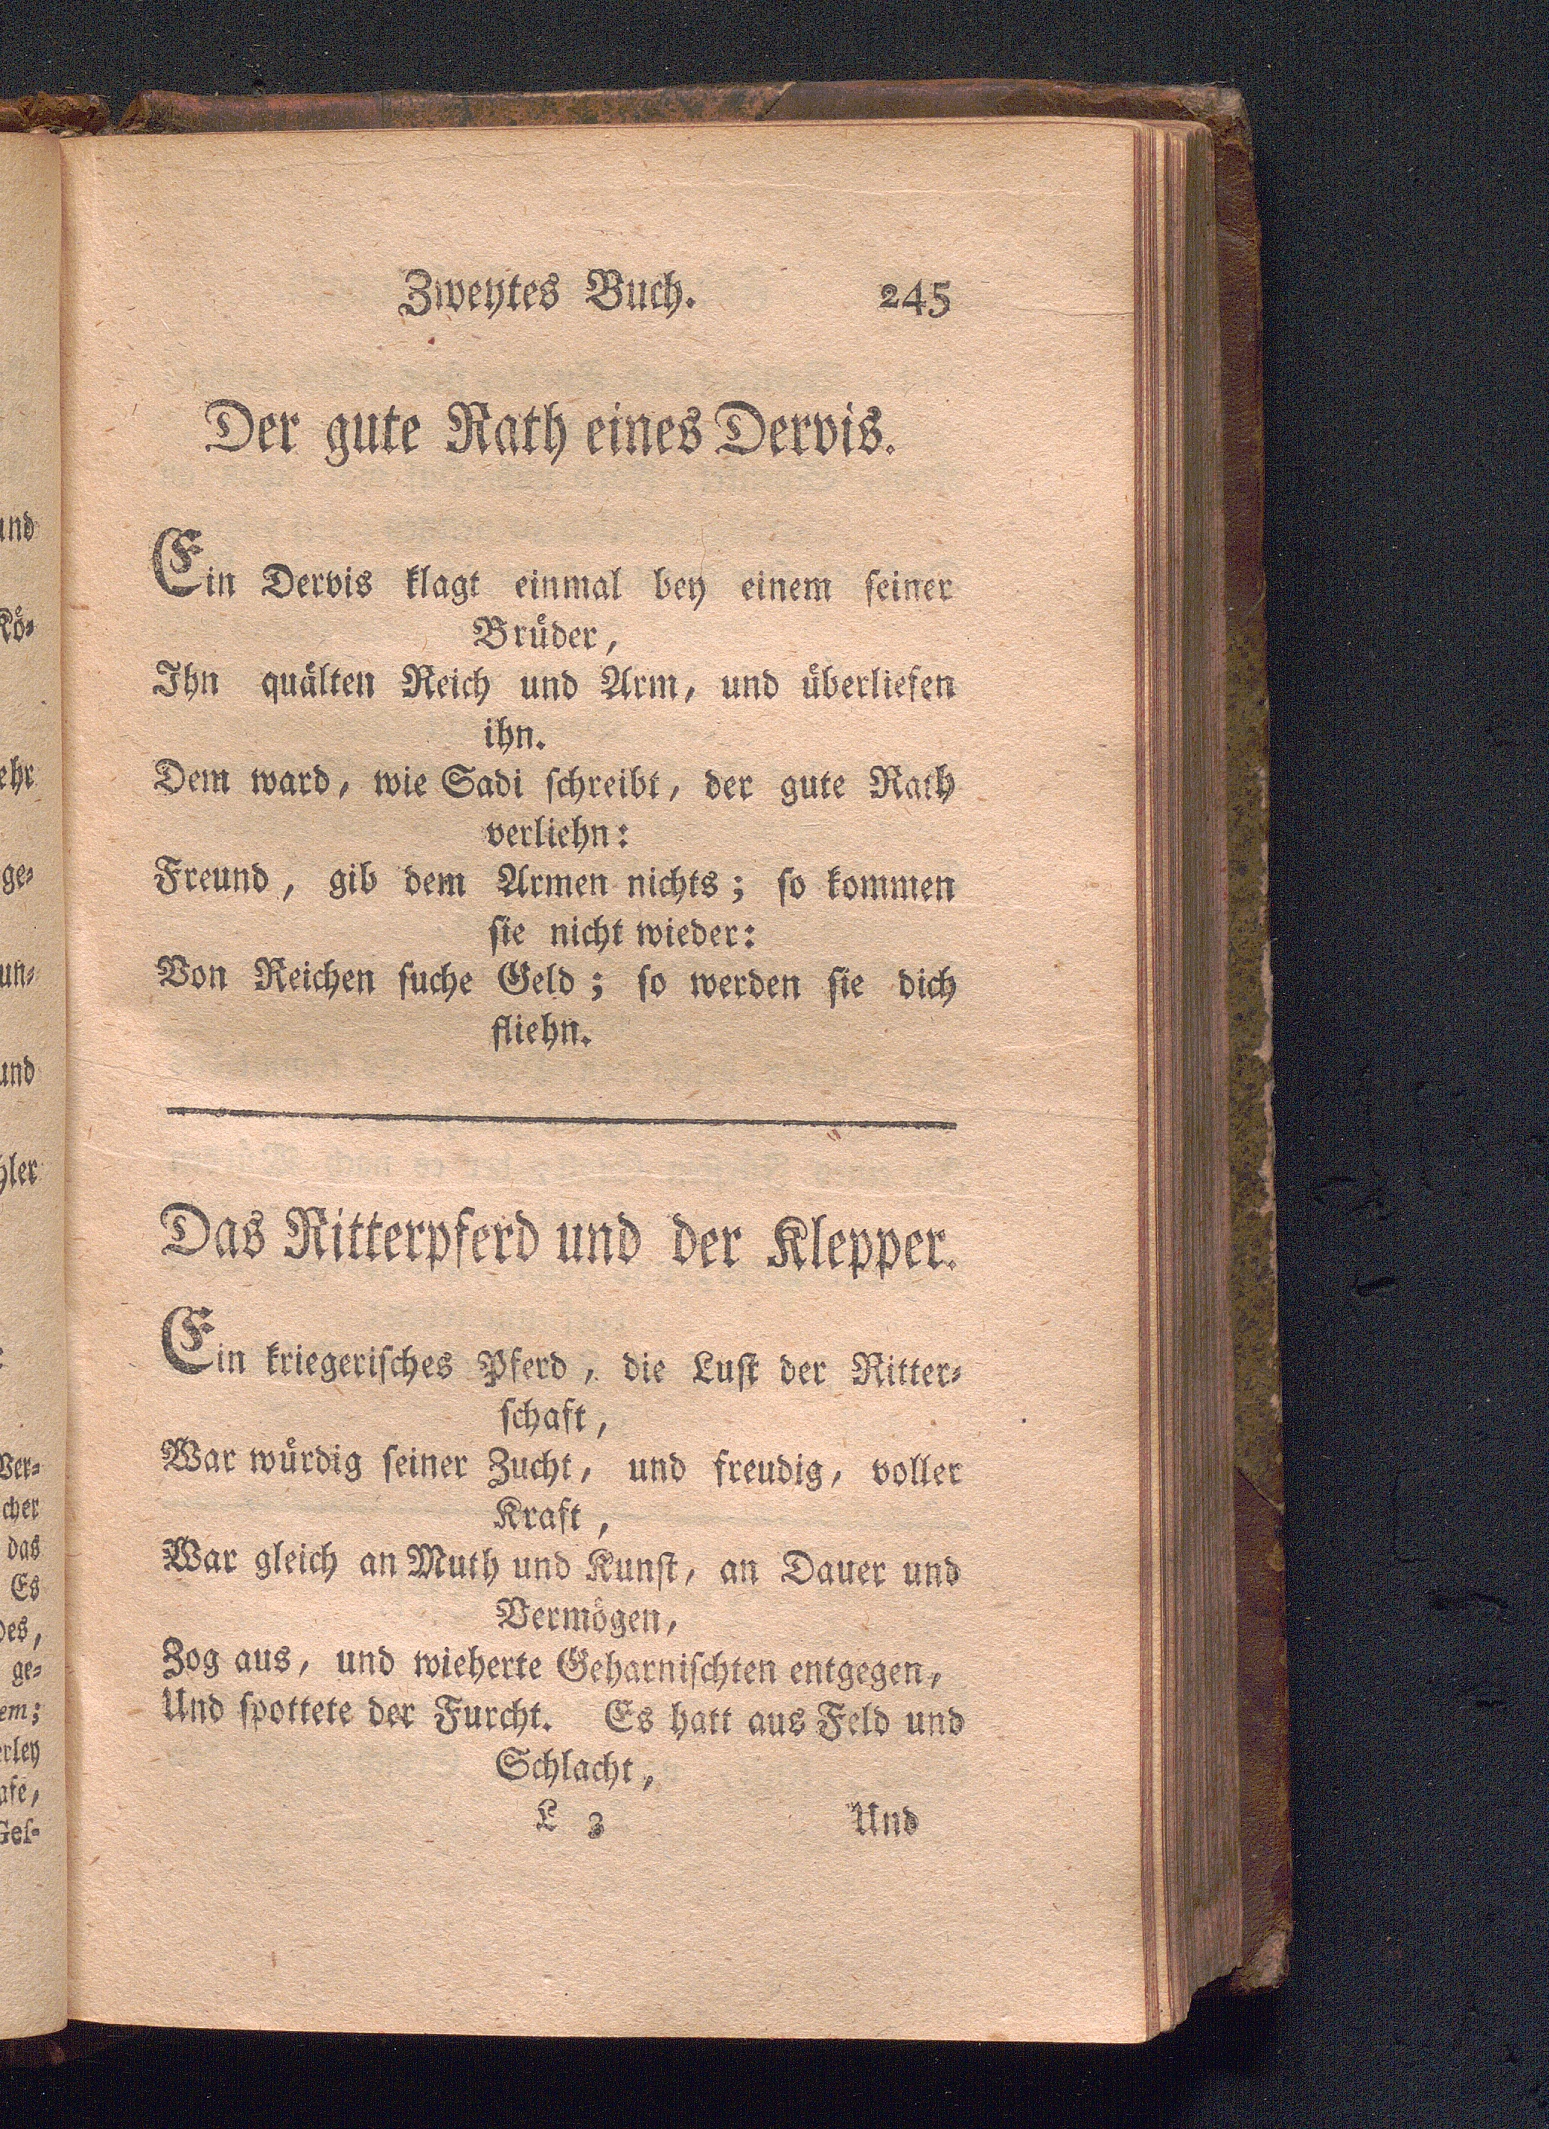 Zweytes Buch. 245
Der gute Rath eines Dervis.
Ein Dervis klagt einmal bey einem ſeiner
Bruͤder,
Ihn quaͤlten Reich und Arm, und uͤberliefen
ihn.
Dem ward, wie Sadi ſchreibt, der gute Rath
verliehn:
Freund, gib dem Armen nichts; ſo kommen
ſie nicht wieder:
Von Reichen ſuche Geld; ſo werden ſie dich
fliehn.
Das Ritterpferd und der Klepper.
Ein kriegeriſches Pferd, die Luſt der Ritter⸗
ſchaft,
War wuͤrdig ſeiner Zucht, und freudig, voller
Kraft,
War gleich an Muth und Kunſt, an Dauer und
Vermoͤgen,
Zog aus, und wieherte Geharniſchten entgegen,
Und ſpottete der Furcht. Es hatt aus Feld und
Schlacht,
L 3 Und